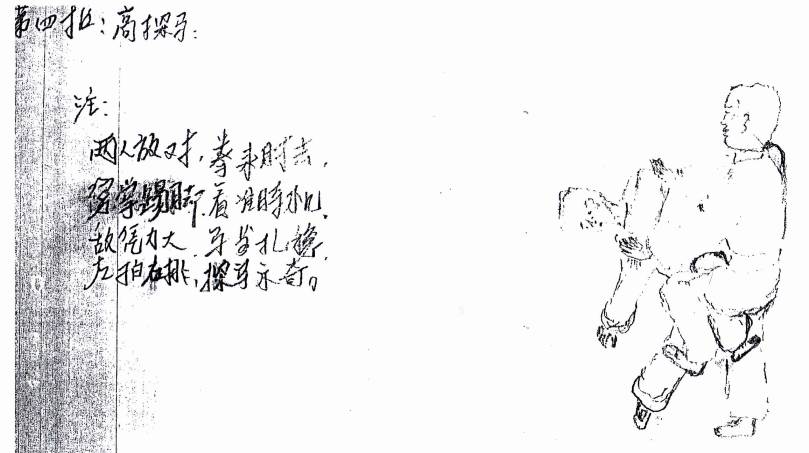 第四批：高探马：
注：
两人放对，拳来肘去，
踢脚，看准时机，
敌凭力大 马步扎稳，
左拍右排，探马示奇。